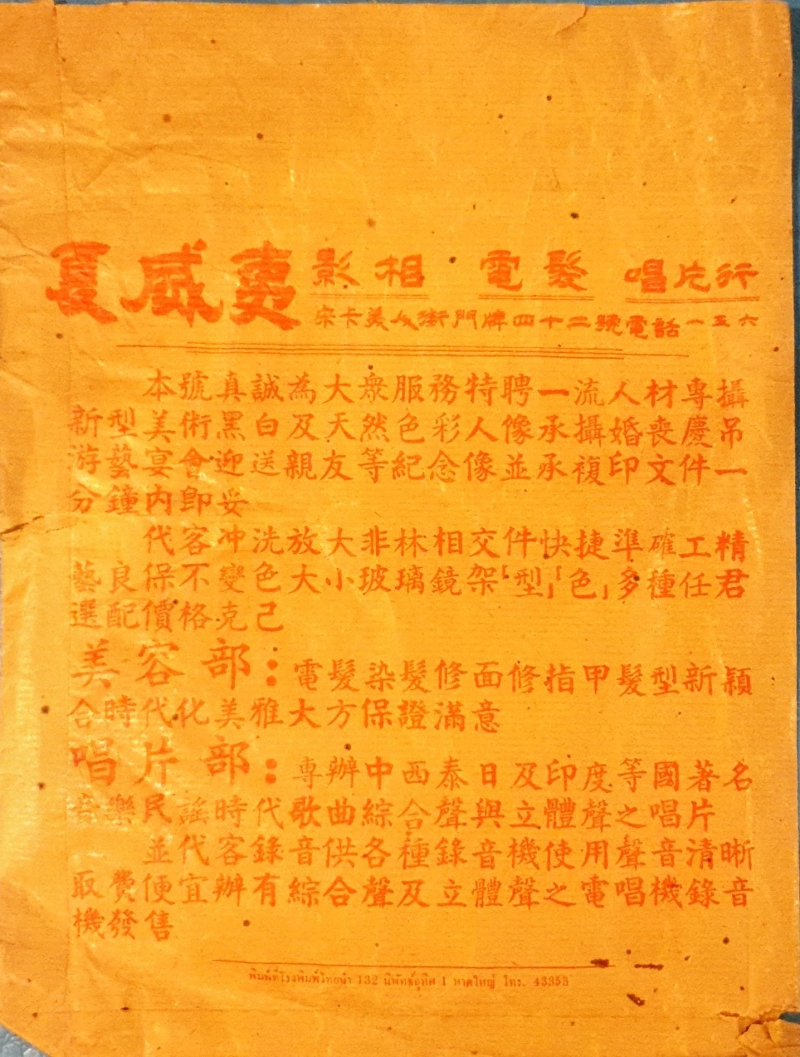 夏威夷 影相 電髮 唱片行
宋卡美人街門牌四十二號電話一五六
本號真誠為大衆服務特聘一流人材專攝
新型美術黑白及天然色彩人像承攝婚喪慶吊
游藝宴會迎送親友等紀念像並承複印文件一
分鐘内即妥
代客冲洗放大非林相交件快捷準確工精
藝良保不變色大小玻璃鏡架「型」「色」多種任君
選配價格克己
美容部：電髮染髮修面修指甲髮型新穎
合時代化美雅大方保證滿意
唱片部：專辦中西泰日及印度等國著名
音樂民謠時代歌曲綜合聲與立體聲之唱片
並代客錄音供各種錄音機使用聲音清晰
取費便宜辦有綜合聲及立體聲之電唱機錄音
機發售
พิมพ์ที่โรงพิมพ์ไทยนำ 132 นิพัทธ์อุทิศ 1 หาดใหญ่ โทร. 43353